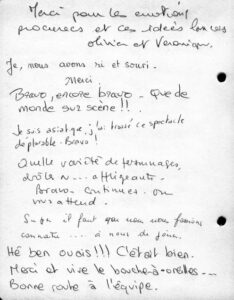 Merci pour les émotions
procurées et ces idées
Olivier et Véronique.
Je, nous avons ri et souri.
Merci
Bravo, encore bravo - Que de
monde sur scène !!
Je suis asiatique, j'ai trouvé ce spectacle
déplorable. Bravo !
Quelle variété de personnages,
drôles ... affligeants.
Bravo continuez on
vous attend.
il faut que nous nous fassions
connaître ... à nous de jouer.
Hé ben ouais !!! C'était bien.
Merci et vive le bouche-à-oreilles...
Bonne route à l'équipe.